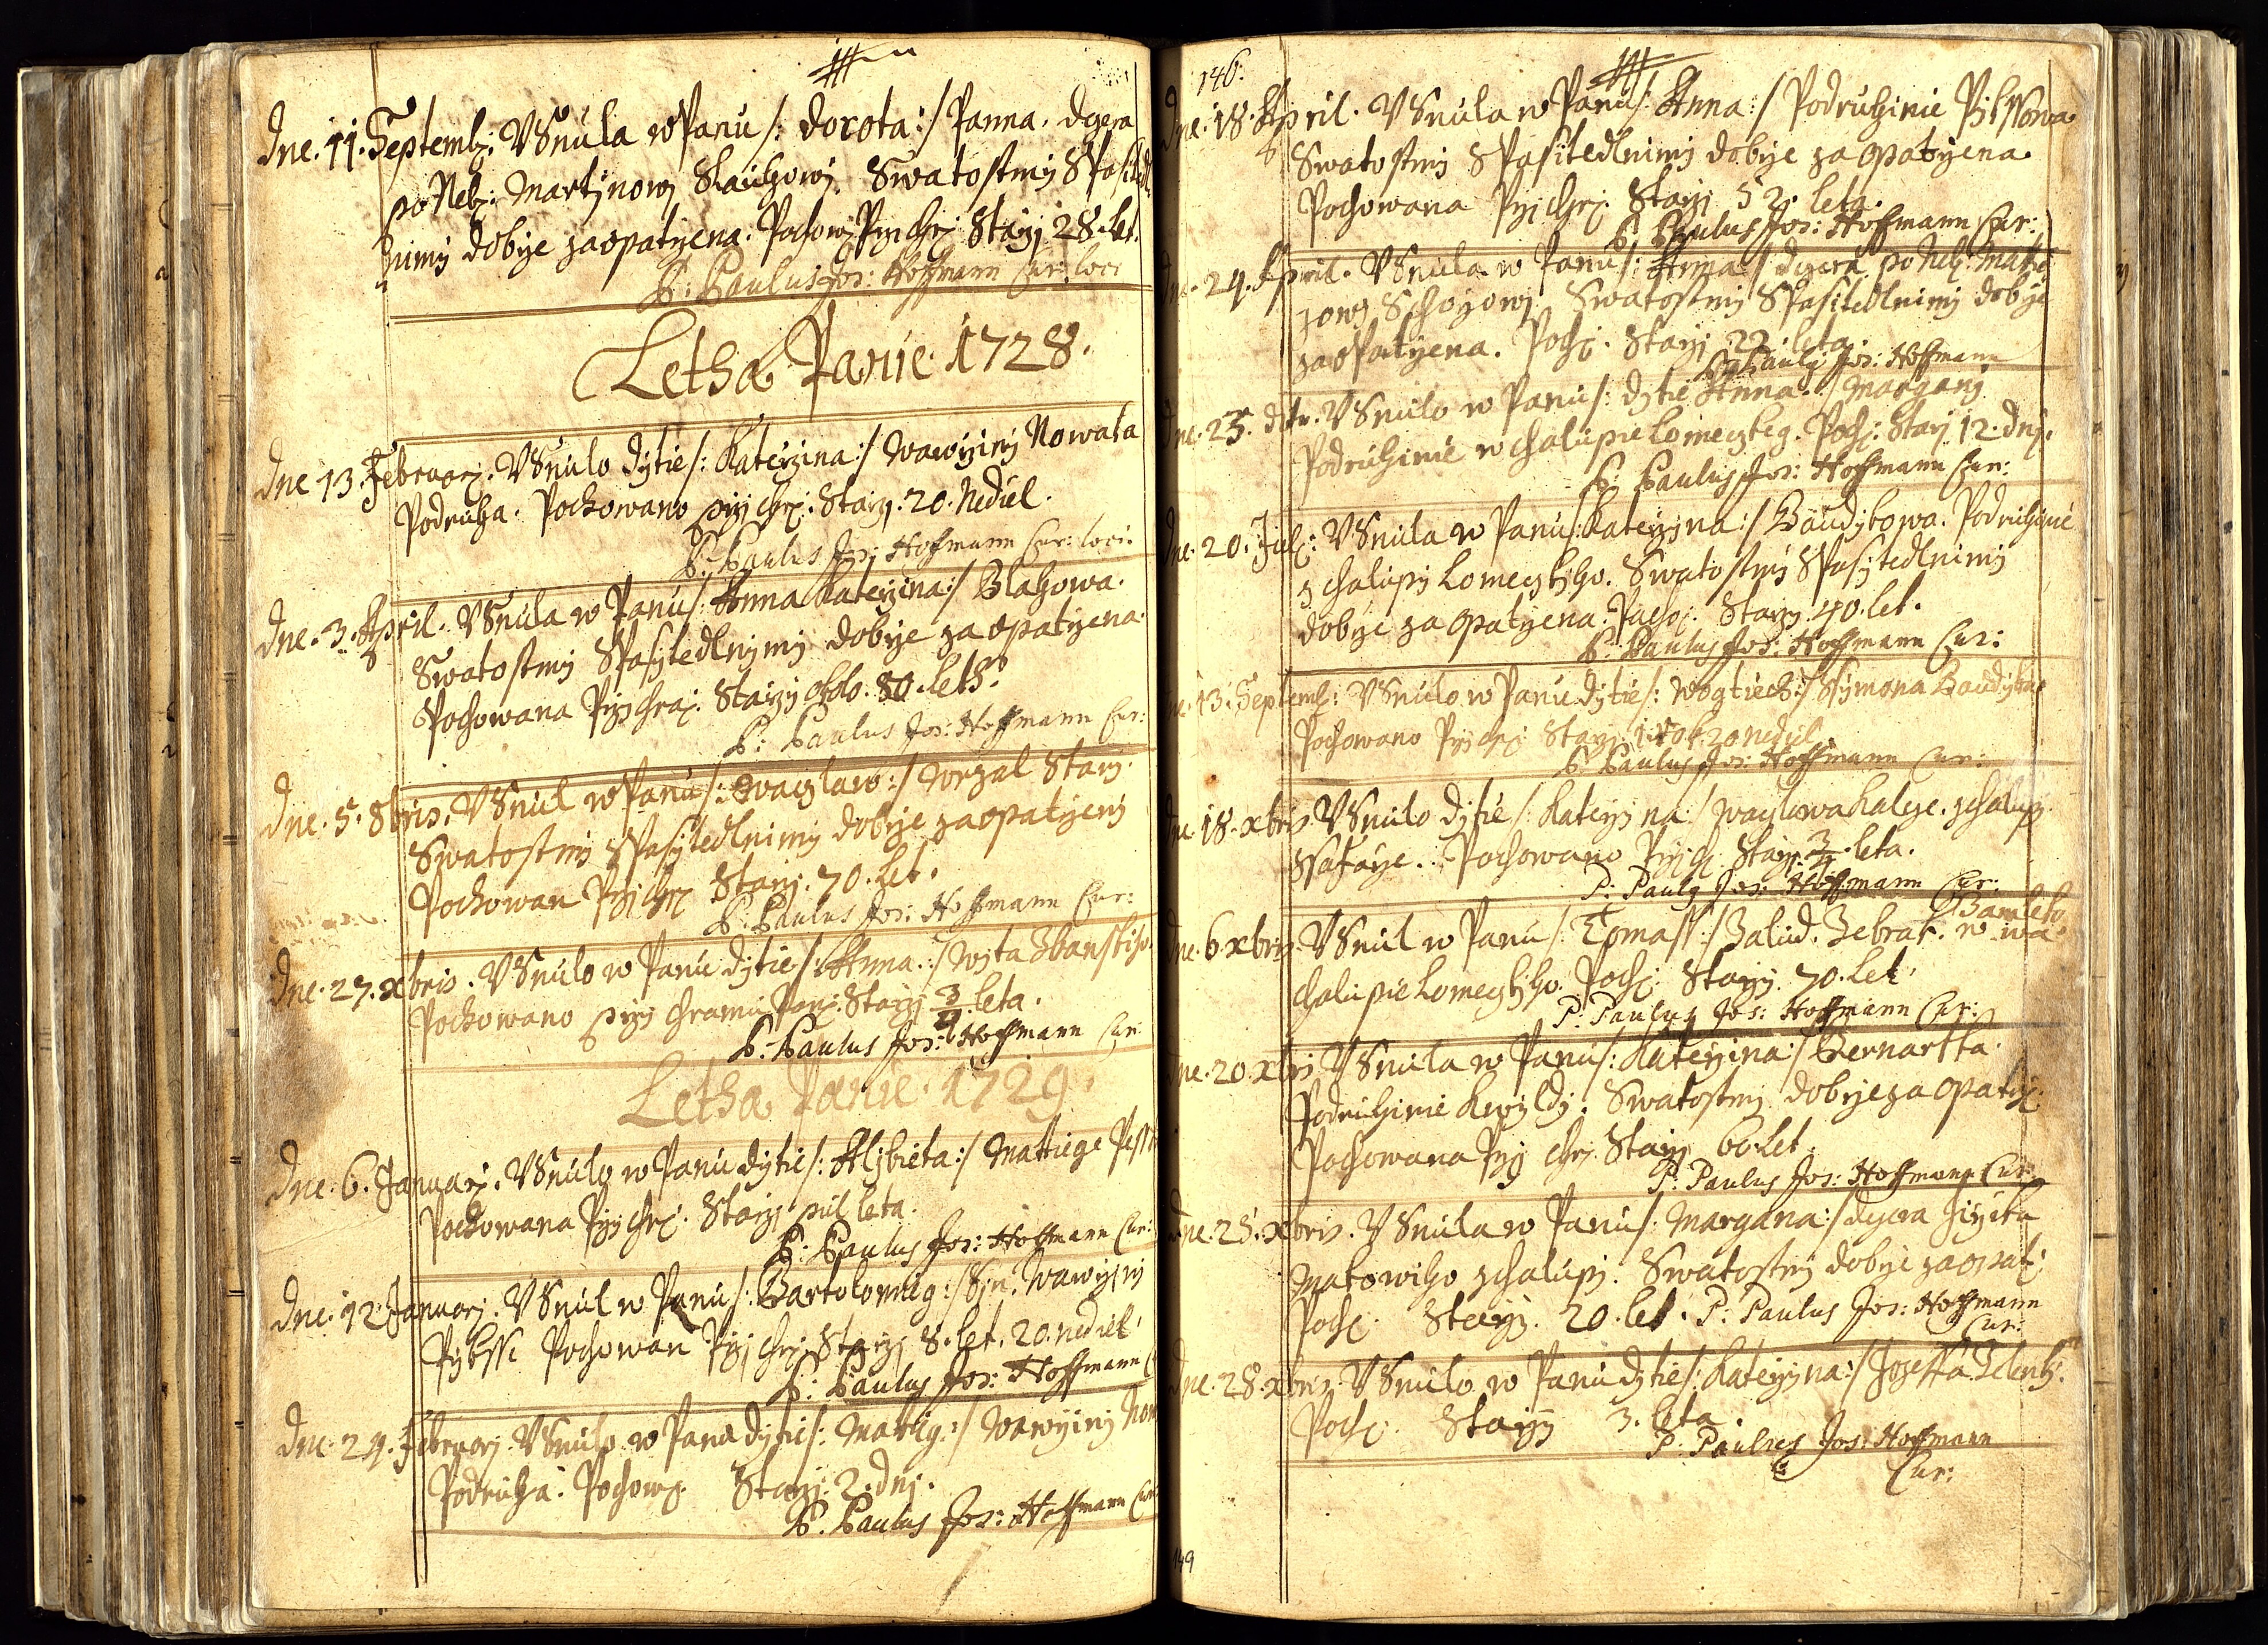 Dne. 11. Septemb: VSnula w Panu /: Dorota :/ Panna. dczera
po Neb: Martinowj Swatostmi Spasitedl
nimj dobrze zaopatrzena. Pochow: Przi Chr: Starzj 28. let.
P: Paulus Jos: Hoffmann Cur: loci
Letha Panie. 1728.
Dne 13. Februarj. VSnulo dytie /: Katerzina :/ Wawrzinj Nowaka
Podruha. Pochowano przj chr: Starzj. 20. Nediel.
P: Paulus Jos: Hoffmann Cur: loci.
Dne. 3. April. VSnula w Panu /: Anna Katerzina :/ Blahowa.
Swatostmj Spasytedlnymj dobrze zaopatrzena.
Pochowana Przj Chra: Starzj okolo. 80. leth.
P: Paulus Jos: Hoffmann Cur:
Dne. 5. 8bris. VSnul w Panu /: Waczlaw :/ Wrzal Starj.
Swatostmj Spasytedlnimj dobrze zaopatrzenj
Pochowan Przj Chr: Starj. 70. let.
P: Paulus Jos: Hoffmann Cur:
Dne. 27. xbris. VSnulo w Panu dytie /: Anna. :/ Wjta
Pochowano przj Chramu Pan: Starzj 3/4 leta.
P: Paulus Jos: Hoffmann Cur
Letha Panie. 1729.
Dne. 6. Januarj. VSnulo w Panu dytie /: Alzbieta :/ Mattiege
Pochowana Przj Chr: Starzj pul leta.
P: Paulus Jos: Hoffmann Cur:
Dne. 12. Januarj. VSnul w Panu /: Bartolomieg :/ Syn. Wawrzinj
Pochowan Przj Chr: Starzj 8. let. 20. nediel.
P: Paulus Jos: Hoffmann
Dne. 24. Februarj. VSnulo w Panu dytie /: Mattieg :/ Wawrzinj
Podruha. Pochow: Starzj. 2. dnj.
P: Paulus Jos: Hoffmann Cur
146.
Dne. 18. April. VSnula w Panu /: Anna :/ Podruhinie
Swatostmj Spasitedlnimj dobrze zaopatrzena.
Pochowana Przj Chr: Starzj 52. leta.
P: Paulus Jos: Hoffmann Cur:
Dne. 24. April. VSnula w Panu /: Anna :/ dczera po Neb: Matie
Swatostmj Spasitedlnimj dobrze
zaopatrzena. Poch: Starzj 22. leta.
P: Paulg Jos: Hoffmann
Dne. 25. VSnulo w Panu /: dytie Anna. :/
Podruhinie w chalupie Lomeczkeg. Poch: Starj 12. dnj.
P: Paulus Jos: Hoffmann Cur:
Dne. 20. Julj: VSnula w Panu /: Katerzina :/ Baudykowa. Podruhinie
z chalupj Lomeczkiho. Swatostmj Spasytedlnimj
dobrze zaopatrzena. Poch: Starzj. 40. let.
P: Paulus Jos: Hoffmann Cur:
Dne. 13. Septemb: VSnulo w Panu dytie /: Wogtiech :/ Ssymona
Pochowano Przj chr: Starj 1. rok 20 nediel.
P: Paulus Jos: Hoffmann Cur:
Dne. 18. xbris. VSnulo dytie /: Katerzina :/
Pochowano Przj Ch: Starj. 3/4. leta.
P: Paulg Jos: Hoffmann Cur:
Dne. 6. xbris. VSnul w Panu /: Tomass :/ Zalud. Zebrak. w
chalupie Lomeczkiho. Poch: Starzj. 70. Let.
P: Paulus Jos: Hoffmann Cur:
Dne. 20. xbris VSnula w Panu /: Katerzina :/
Podruhinie Swatostmj dobrze zaopatrz:
Pochowana Przj Chr: Starzj 60 Let.
P: Paulus Jos: Hoffmann Cur:
Dne. 25. xbris. VSnula w Panu /: Margana :/ dczera Jirzika
Matowiho z chalupj. Swatostmj dobrze zaopat:
Poch: Starzj. 20. let. P: Paulus Jos: Hoffmann
Cur:
Dne. 28. xbris. VSnulo w Panu dytie /: Katerzina :/ Joseffa
Poch: Starzj 3. leta.
P: Paulus Jos: Hoffmann
Cur:
149